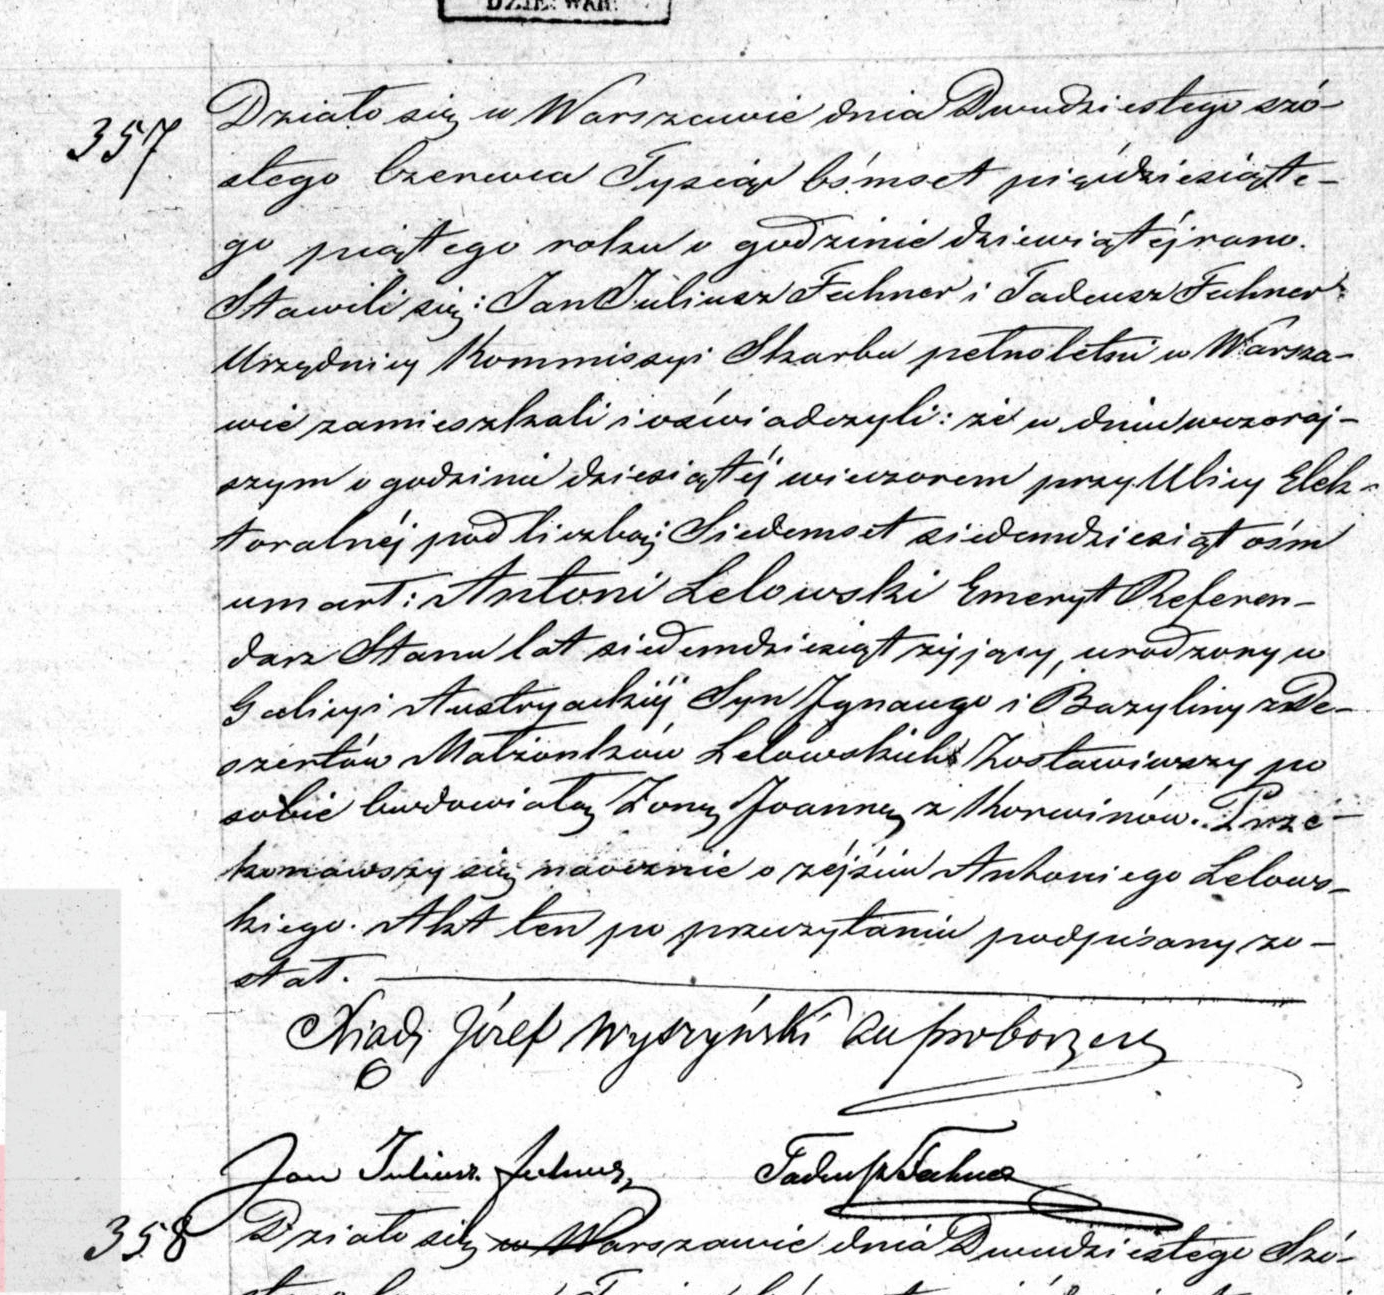 DZIE: WAR:
357
Działo się w Warszawie dnia Dwudziestego szó-
stego Czerwca Tysiąc ośmset pięćdziesiąte-
go piątego roku o godzinie dziewiątéj rano.
Stawili się: Jan Juliusz Fuhner i Tadeusz Fuhner
Urzędnicy Kommissyi Skarbu pełnoletni w Warsza-
wie zamieszkali i oświadczyli: że w dniu wczoraj-
szym o godzinie dziesiątéj wieczorem przy Ulicy Elek-
toralnéj pod liczbą Siedemset siedemdziesiąt ośm
umarł: Antoni Lelowski Emeryt Referen-
darz Stanu lat siedemdziesiąt żyjący, urodzony w
Galicyi Austryackiéj Syn Ignacego i Bazyliny z De-
szertów Małżonków Lelowskich Zostawiwszy po
sobie owdowiałą Żonę Joannę z Korwinów. Prze-
konawszy się naocznie o zéjściu Antoniego Lelows-
kiego. Akt ten po przeczytaniu podpisany zo-
stał.
Xiądz Józef Wyszyński proboszcz
Jan Juliusz Fuhner Tadeusz Fuhner
358
Działo się w Warszawie dnia Dwudziestego Szó-